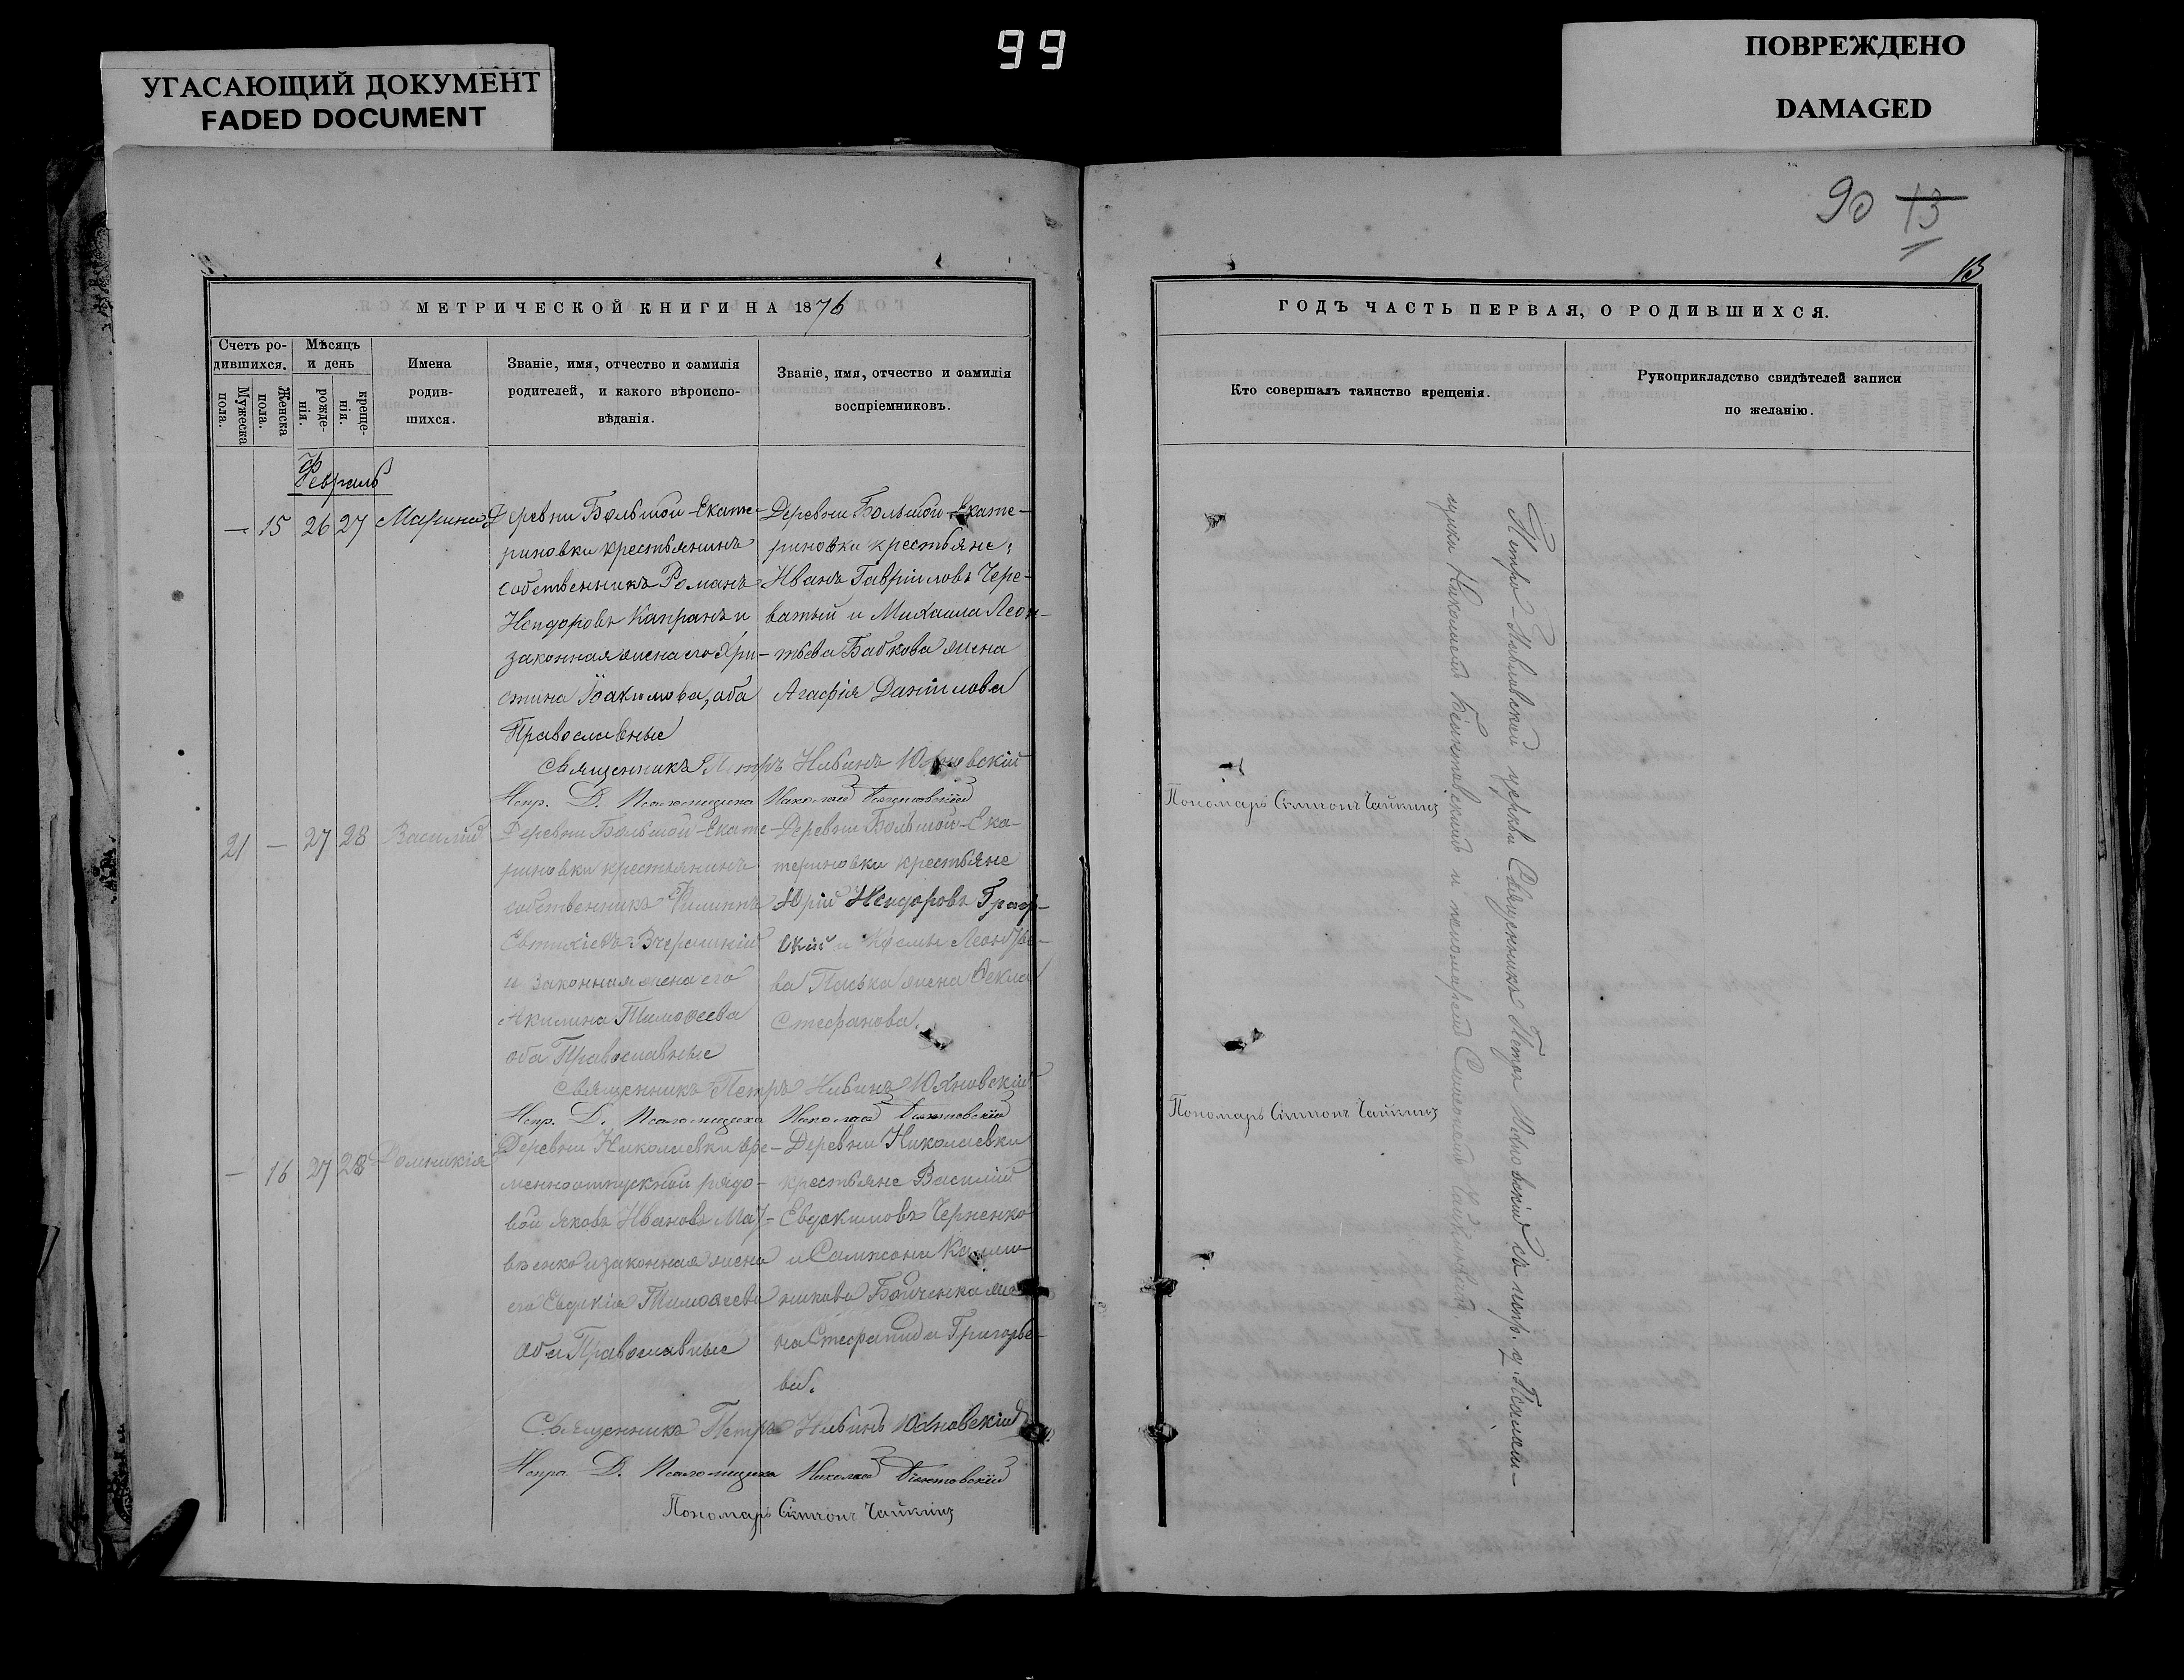 99
УГАСАЮЩИЙ ДОКУМЕНТ
FADED DOCUMENT
ПОВРЕЖДЕНО
DAMAGED
90 13
13
МЕТРИЧЕСКОЙ КНИГИ НА 1876
Счетъ ро-
дившихся.
Мужеска
пола.
Женска
пола.
Мѣсяцъ
и день
рожде-
нія.
креще-
нія.
Имена
родив-
шихся.
Званіе, имя, отчество и фамилія
родителей, и какого вѣроиспо-
вѣданія.
Званіе, имя, отчество и фамилія
воспріемниковъ.
Февраль
— 15 26 27 Марина
Деревни Большой-Екате-
риновки крестьянинъ
собственникъ Романъ
Исидоровъ Капранъ и
законная жена его Хри-
стина Іоакимова, оба
Православные
Деревни Большой-Екате-
риновки крестьяне:
Иванъ Гавріиловъ Чере-
ватый и Михаила Леон-
тьева Бабкова жена
Агафія Даніилова
Священникъ Петръ Юхновскій
Испр. Д. Псаломщика Николай
21 — 27 28 Василій
Деревни Большой-Екате-
риновки крестьянинъ
собственникъ Филиппъ
Евтихіевъ Вчерашній
и законная жена его
Акилина Тимоѳеева
оба Православные
Деревни Большой-Ека-
териновки крестьяне
Юрій Исидоровъ
и Космы Леонтье-
ва жена Ѳекла
Стефанова.
Священникъ Петръ Юхновскій
Испр. Д. Псаломщика Николай
— 16 27 28 Домникія
Деревни Николаевки вре-
менноотпускной рядо-
вой Яковъ Ивановъ
и законная жена
его Евдокія Тимоѳеева
оба Православные
Деревни Николаевки
крестьяне Василій
Евдокимовъ Черненко
и Самжсона
никова Бойченка же-
на Стефанида Григорье-
ва.
Священникъ Петръ Юхновскій
Испра. Д. Псаломщика Николай
Пономарь Симионъ Чайкинъ
ГОДЪ ЧАСТЬ ПЕРВАЯ, О РОДИВШИХСЯ.
Кто совершалъ таинство крещенія.
Рукоприкладство свидѣтелей записи
по желанію.
Пономарь Симионъ Чайкинъ
Пономарь Симионъ Чайкинъ
Петро-Павловской церкви Священникъ Петръ Юхновскій съ испр. д. Псалом-
щика Николаемъ и пономаремъ Симеономъ Чайкинымъ.